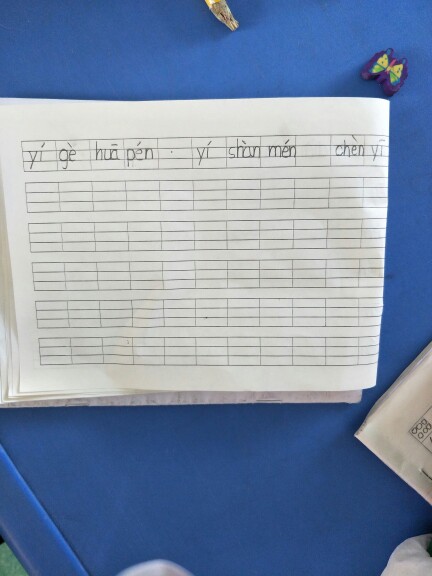 yí gè huā pén · yí shàn mén chèn yī